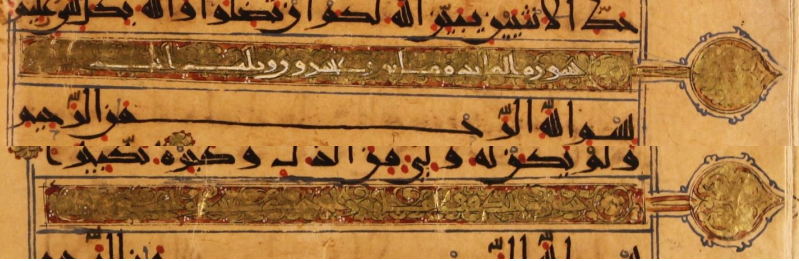 حظ الانثيين يبين الله لكم ان تضلوا والله بكل شي عليم
سوره المائده مايه وعشرون وثلث
بسم الله الرحمن الرحيم
ولم يكن له ولي من الذل وكبره تكبيرا
بسم الله الرحمن الرحيم